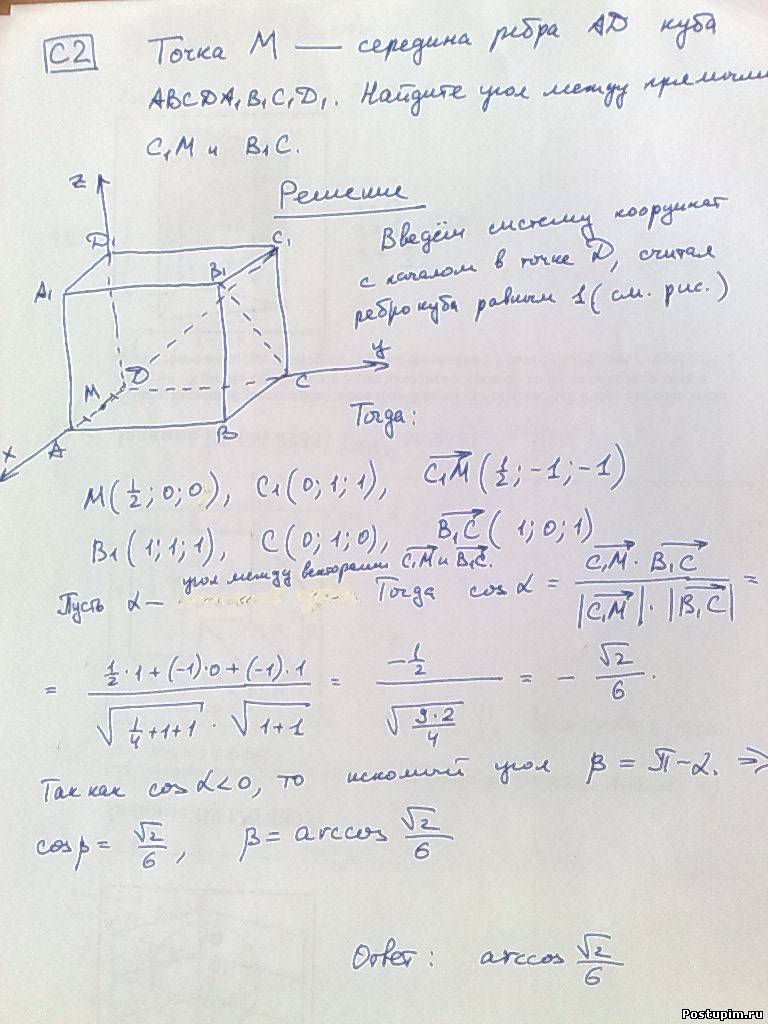 C2 Точка M — середина ребра AD куба
ABCDA₁B₁C₁D₁. Найдите угол между прямыми
C₁M и B₁C.
Решение
Введём систему координат
с началом в точке D, считая
ребро куба равным 1 (см. рис.)
z
D₁
C₁
A₁
B₁
y
M
D
C
x
A
B
Тогда:
M(1/2; 0; 0), C₁(0; 1; 1), C₁M→(1/2; -1; -1)
B₁(1; 1; 1), C(0; 1; 0), B₁C→(1; 0; 1)
угол между векторами C₁M→ и B₁C→.
Пусть α — Тогда cos α = (C₁M→ · B₁C→)/(|C₁M→| · |B₁C→|) =
= (1/2·1 + (-1)·0 + (-1)·1)/(√(1/4+1+1) · √(1+1)) = (-1/2)/√(9·2/4) = - √2/6.
Так как cos α < 0, то искомый угол β = π - α. ⇒
cos β = √2/6, β = arccos √2/6
Ответ: arccos √2/6
Postupim.ru